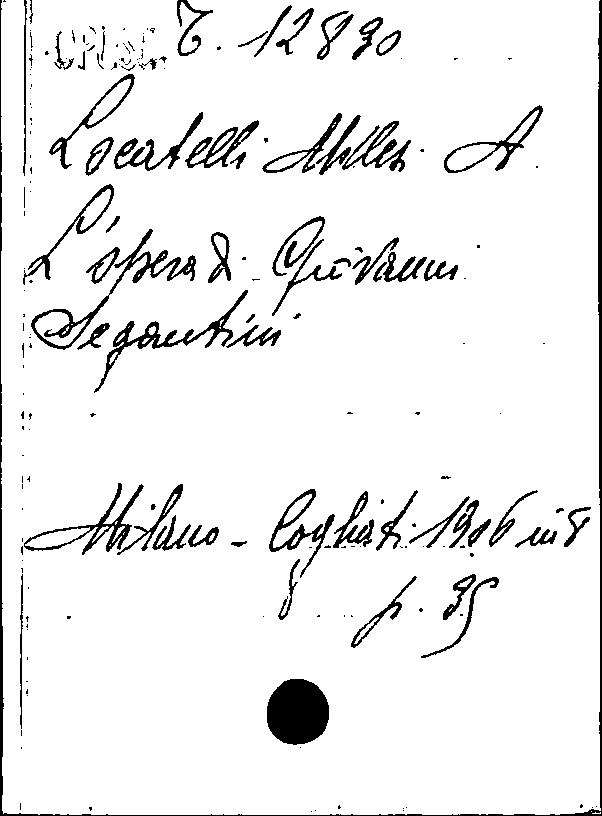 OPUSC. T. 12890
Locatelli Milesi A
L'opera di Giovanni
Segantini
Milano - Cogliati 1906 in 8
p. 35